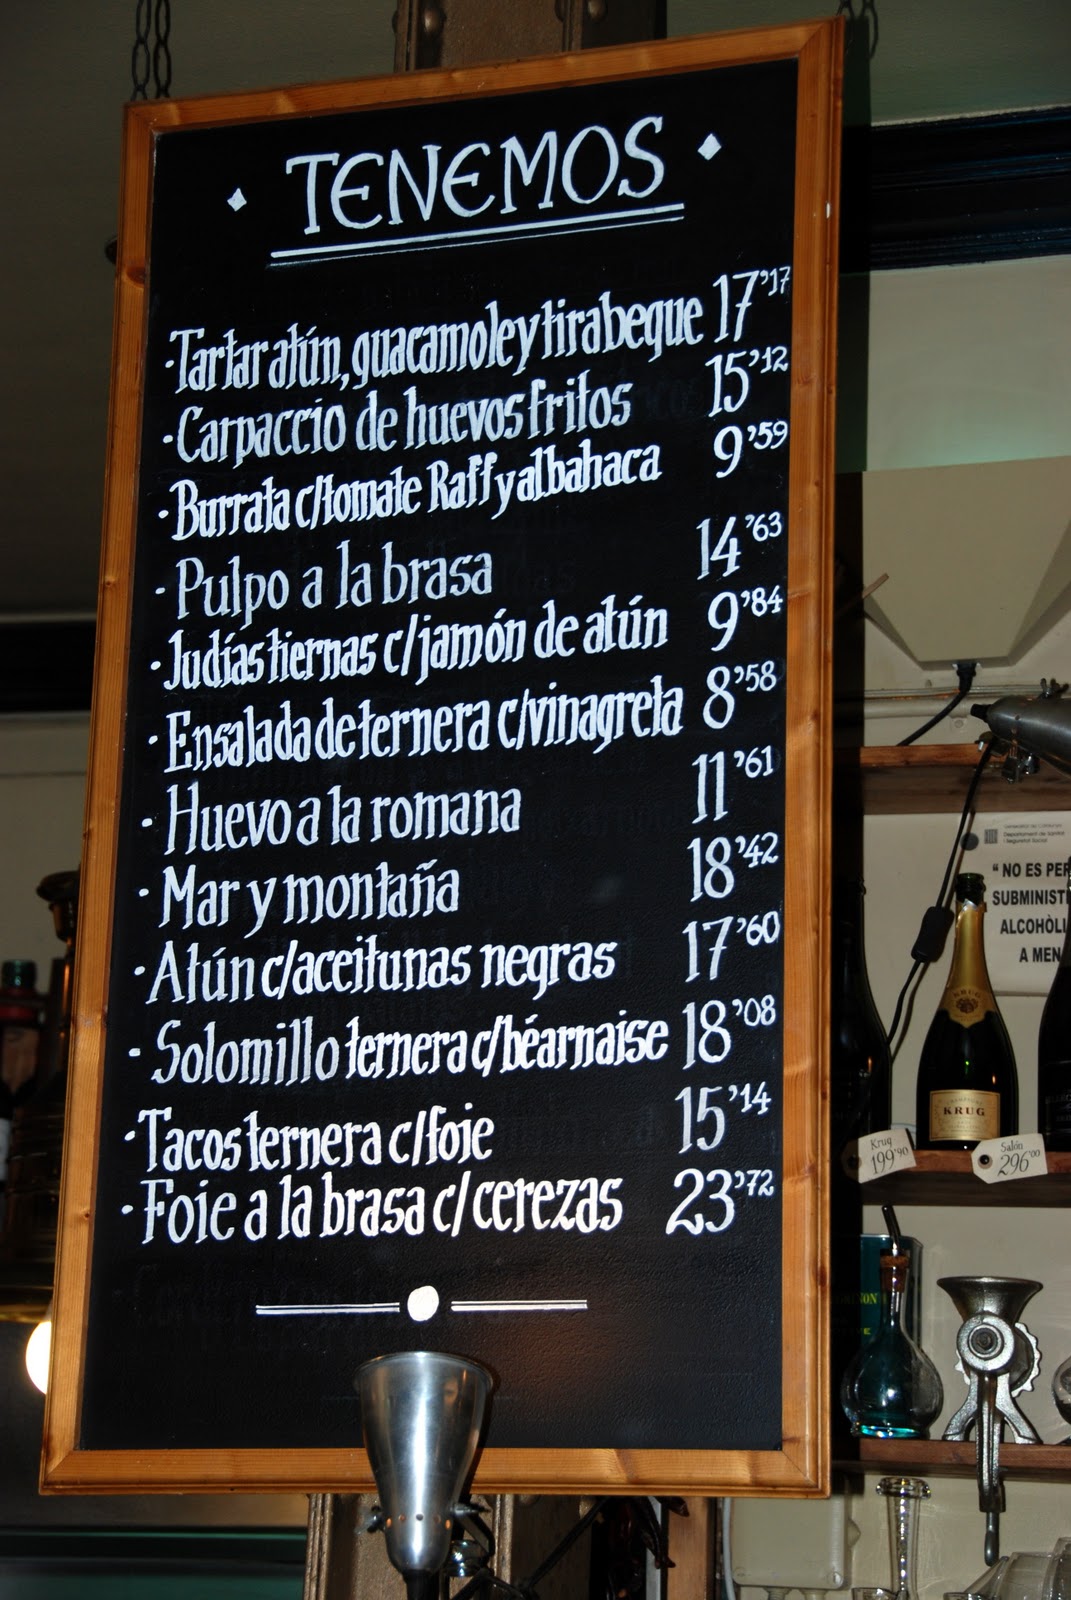 TENEMOS
·Tartar atún, guacamole y tirabeque 17'17
·Carpaccio de huevos fritos 15'12
·Burrata c/tomate Raff y albahaca 9'59
·Pulpo a la brasa 14'63
·Judías tiernas c/jamón de atún 9'84
·Ensalada de ternera c/vinagreta 8'58
·Huevo a la romana 11'61
·Mar y montaña 18'42
·Atún c/aceitunas negras 17'60
·Solomillo ternera c/béarnaise 18'08
·Tacos ternera c/foie 15'14
·Foie a la brasa c/cerezas 23'72
Generalitat de Catalunya
Departament de Sanitat
i Seguretat Social
"NO ES PER
SUBMINIST
ALCOHÒLI
A MEN
KRUG
CHAMPAGNE
KRUG
Krug
199'90
Salón
296'00